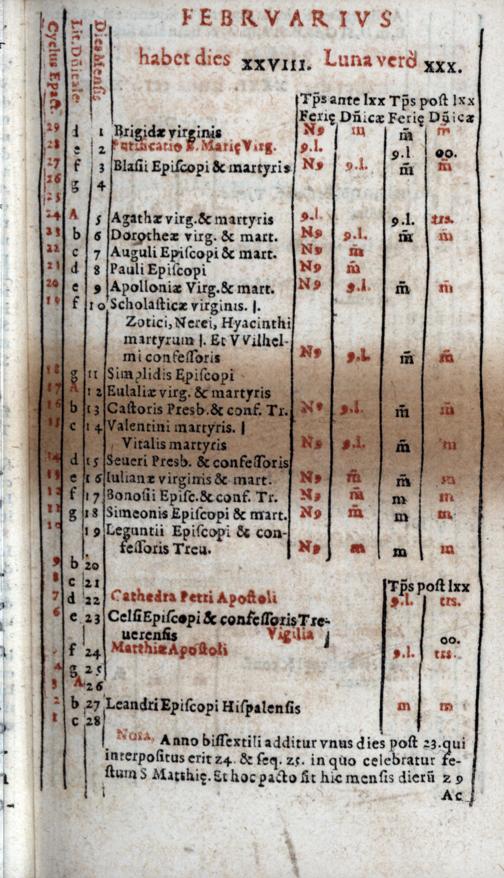 FEBRVARIVS
habet dies XXVIII. Luna verò XXX.
Cyclus Epact.
Lit. Dñicale.
Dies Mensis
Tp̃s ante lxx Tp̃s post lxx
Ferię Dñicæ Ferię Dñicæ
29 d 1 Brigidæ virginis N9 m m̃ m
28 e 2 Purificatio B. Marię Virg. 9.l. 9.l oo.
27 f 3 Blasii Episcopi & martyris N9 9.l. m̃ m̃
26 g 4
25
24 A 5 Agathæ virg. & martyris 9.l. 9.l. trs.
23 b 6 Dorotheæ virg. & mart. N9 9.l. m̃ m̃
22 c 7 Auguli Episcopi & mart. N9 m̃
21 d 8 Pauli Episcopi N9 m̃
20 e 9 Apolloniæ Virg. & mart. N9 9.l. m̃ m̃
19 f 10 Scholasticæ virginis. |.
Zotici, Nerei, Hyacinthi
martyrum |. Et VVilhel-
mi confessoris N9 9.l. m̃ m̃
18 g 11 Simplidis Episcopi
17 A 12 Eulaliæ virg. & martyris
16 b 13 Castoris Presb. & conf. Tr. N9 9.l. m̃ m̃
15 c 14 Valentini martyris. |
Vitalis martyris N9 9.l. m̃ m
14 d 15 Seueri Presb. & confessoris
13 e 16 Iulianæ virginis & mart. N9 m̃ m̃ m
12 f 17 Bonosii Episc. & conf. Tr. N9 m̃ m m
11 g 18 Simeonis Episcopi & mart. N9 m m m
10 19 Leguntii Episcopi & con-
fessoris Treu. N9 m m m
9 b 20
8 c 21 Tp̃s post lxx
7 d 22 Cathedra Petri Apostoli 9.l. trs.
6 e 23 Celsi Episcopi & confessoris Tre-
uerensis Vigilia | oo.
f 24 Matthiæ Apostoli 9.l. trs.
4 g 25
3 A 26
2 b 27 Leandri Episcopi Hispalensis m m
1 c 28
Nota, Anno bissextili additur vnus dies post 23. qui
interpositus erit 24. & seq. 25. in quo celebratur fe-
stum S. Matthię. Et hoc pacto sit hic mensis dierũ 29
Ac